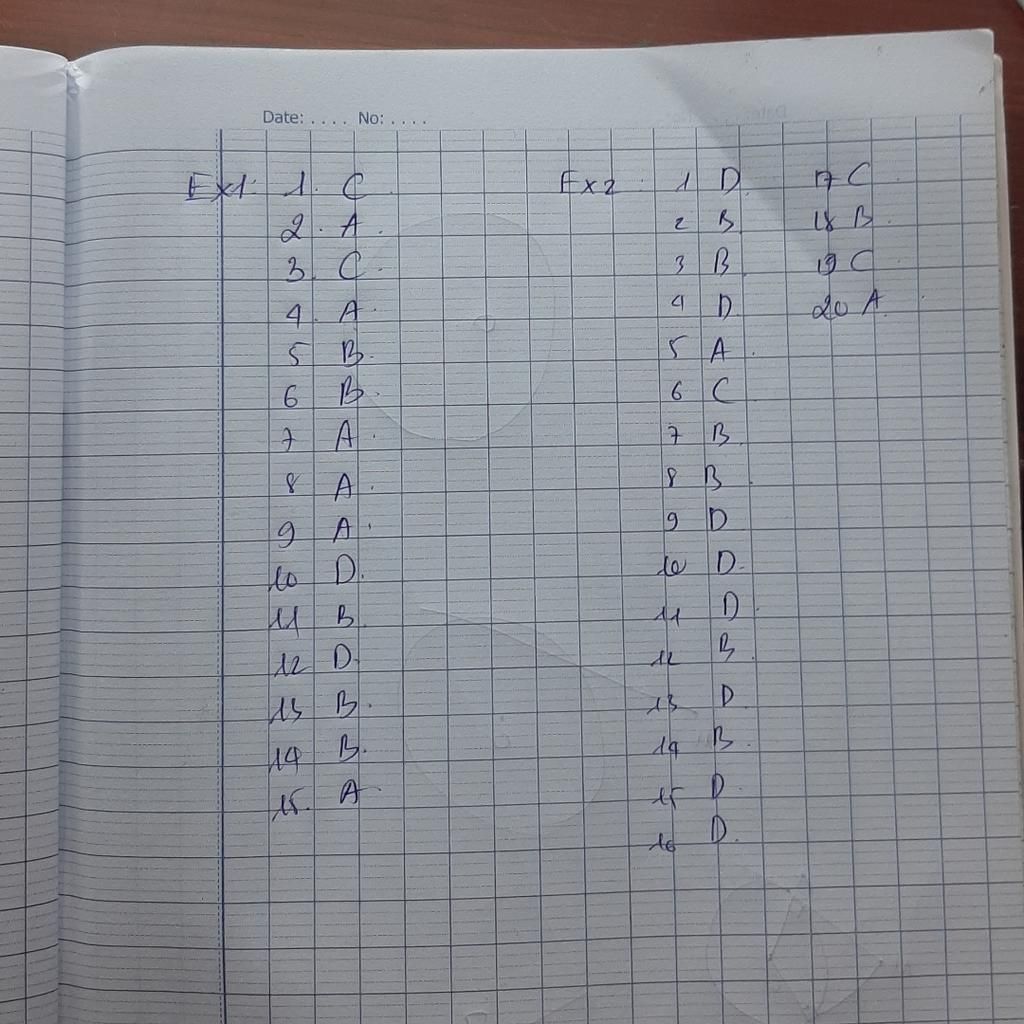 Date: .... No: ....
Ex1: 1. C
2. A.
3. C.
4. A.
5 B.
6 B.
7 A.
8 A.
9 A.
10 D.
11 B.
12 D.
13 B.
14 B.
15. A
Ex2. 1 D.
2 B
3 B
4 D
5 A.
6 C
7 B.
8 B.
9 D
10 D.
11 D.
12 B
13 D
14 B.
15 D.
16 D.
17 C.
18 B.
19 C.
20 A.